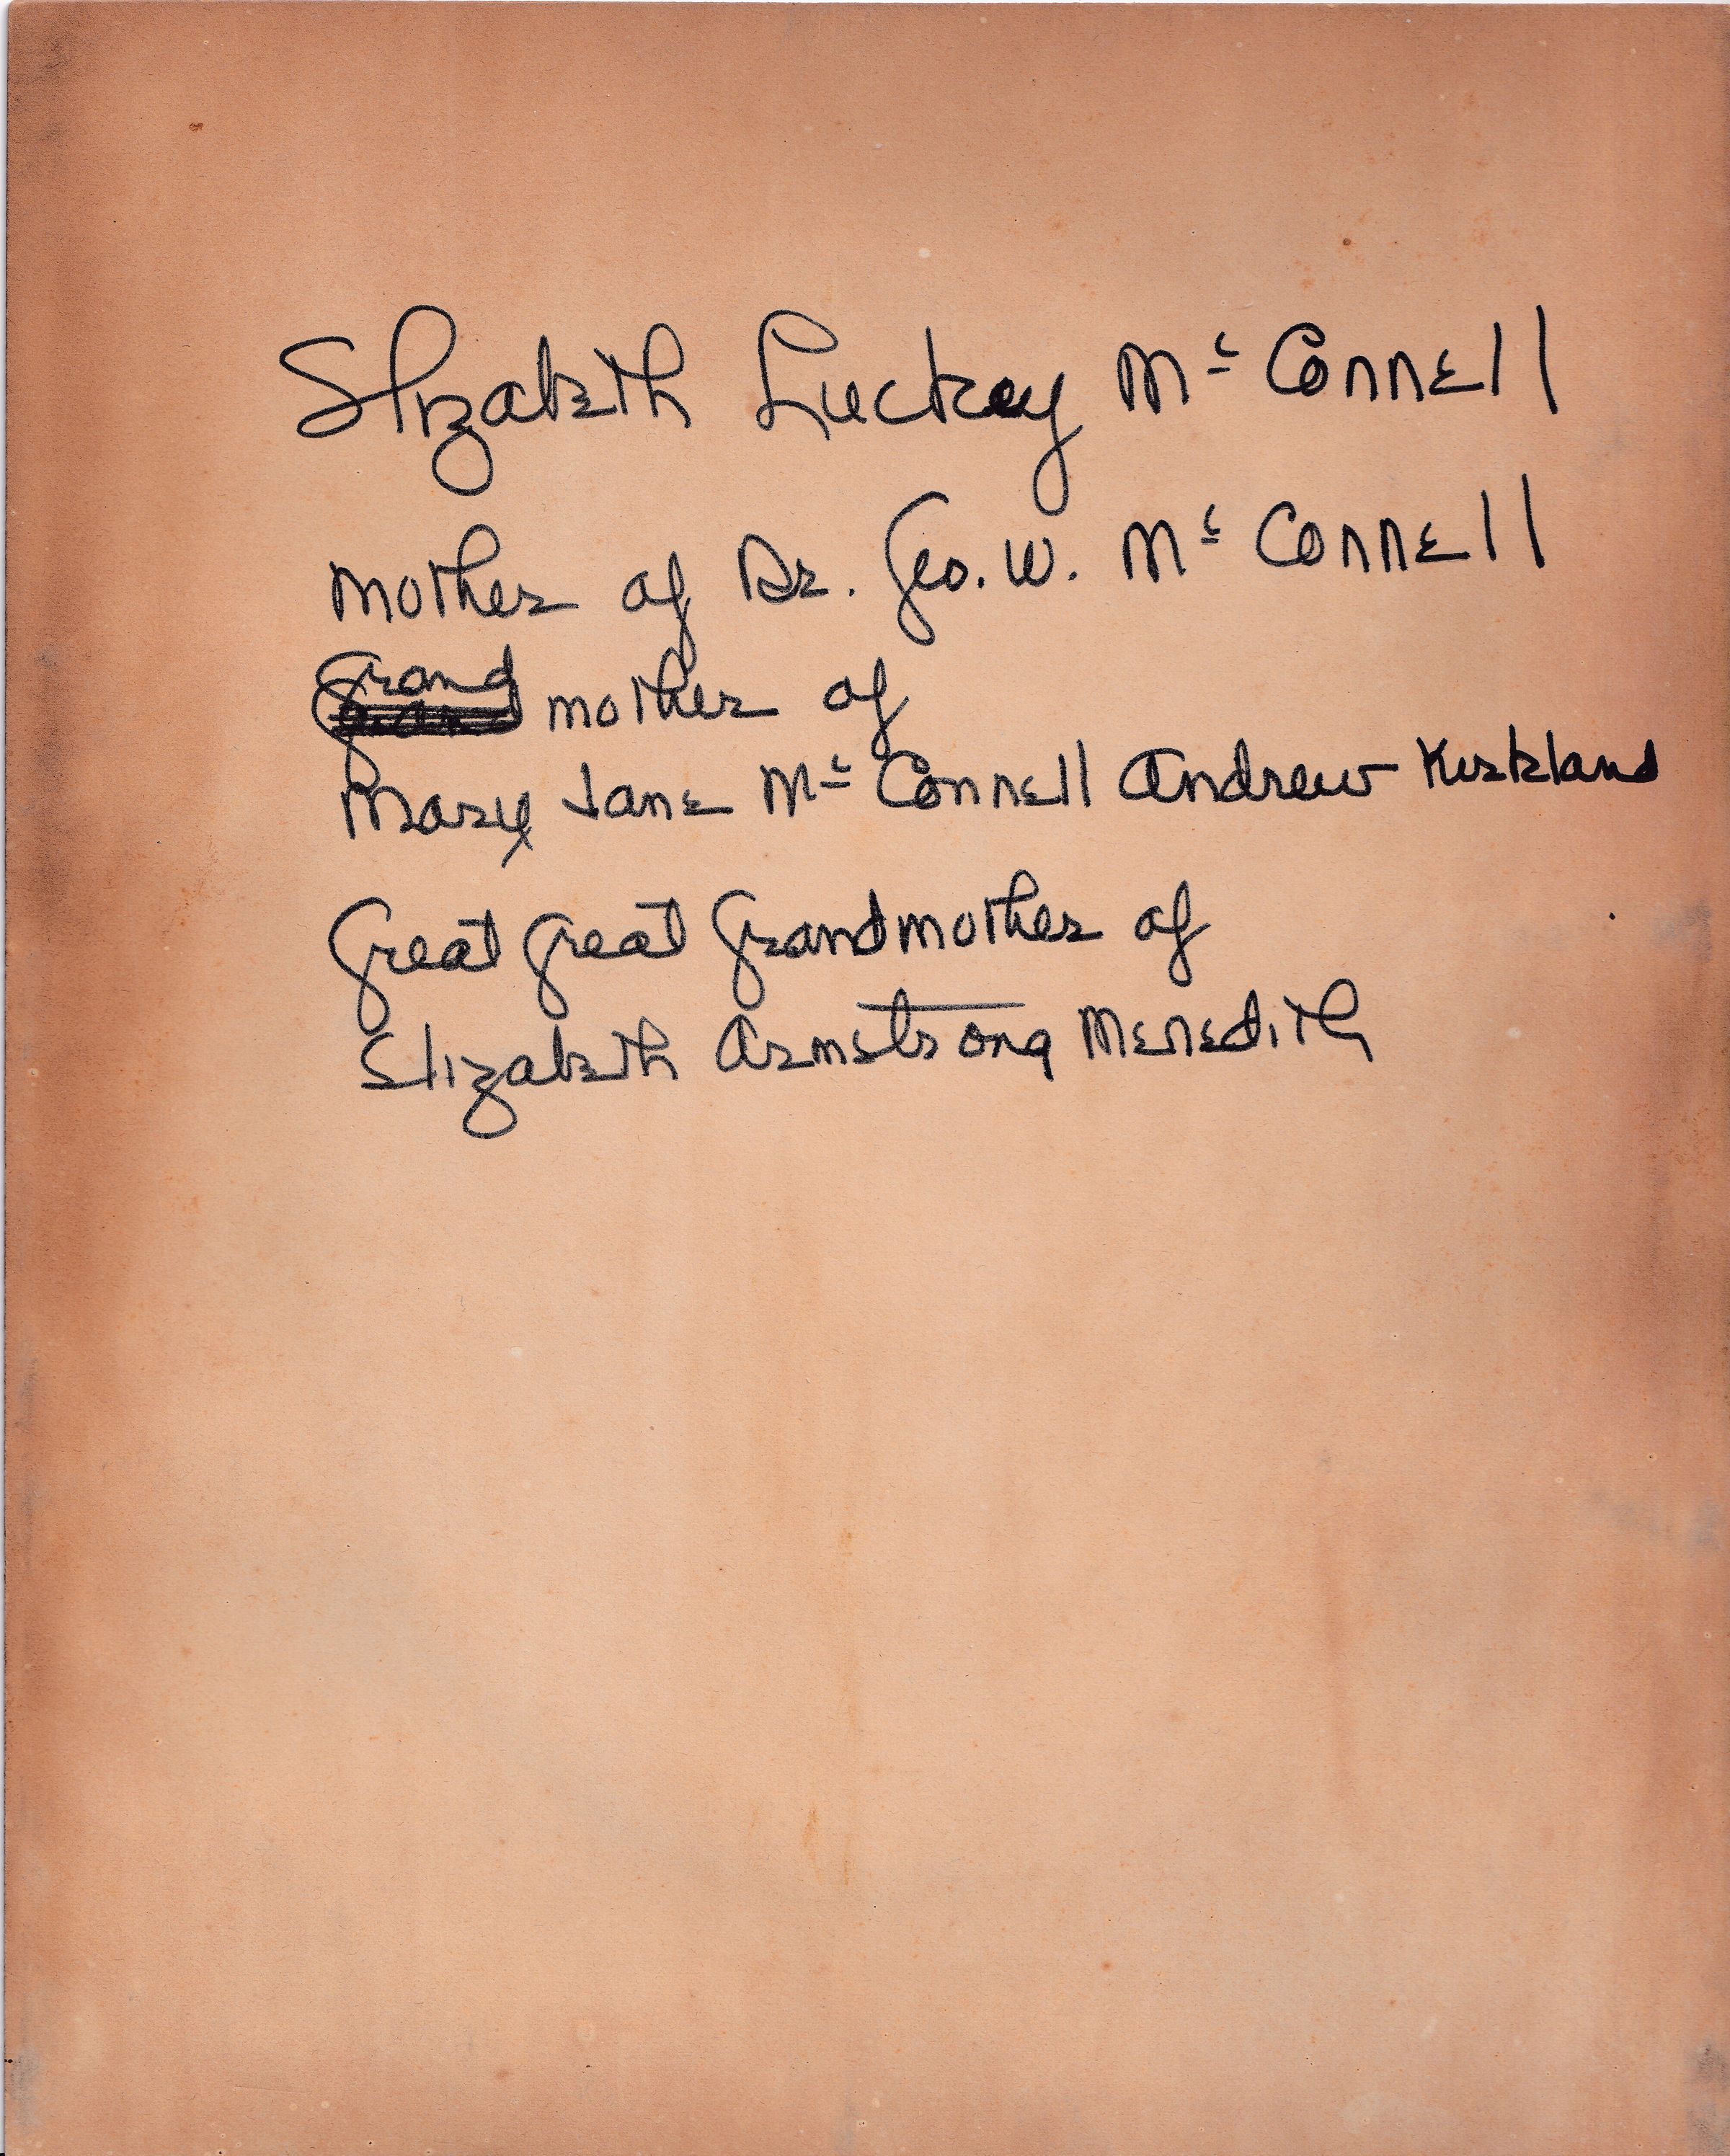 Elizabeth Luckey Mc Connell
Mother of Dr. Geo. W. Mc Connell
Grand
mother of
Mary Jane Mc Connell Andrew Kirkland
Great Great Grandmother of
Elizabeth Armstrong Meredith